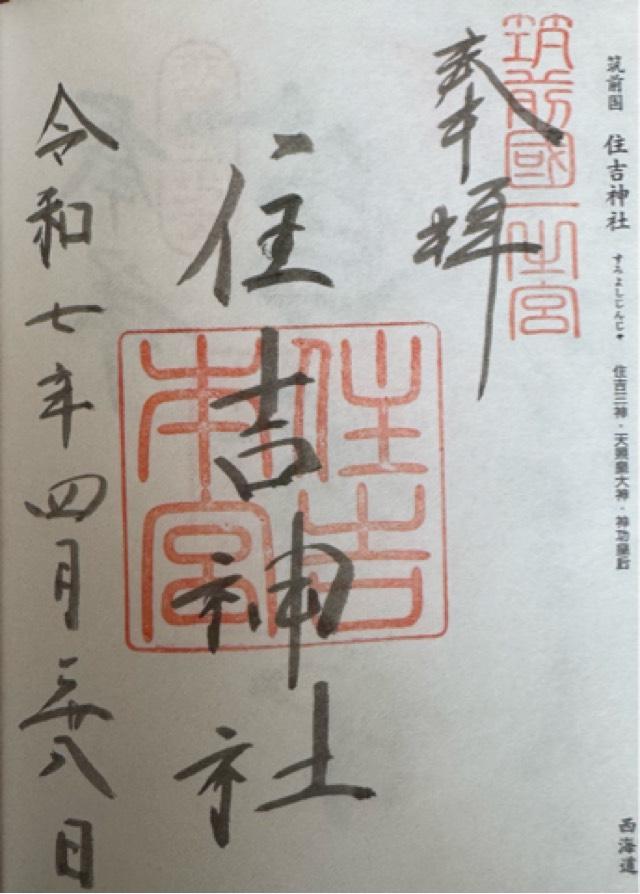 筑前国 住吉神社 すみよしじんじゃ 住吉三神・天照皇大神・神功皇后
西海道
筑前國一之宮
奉拝
住吉神社
住吉
本宮
令和七年四月二十八日